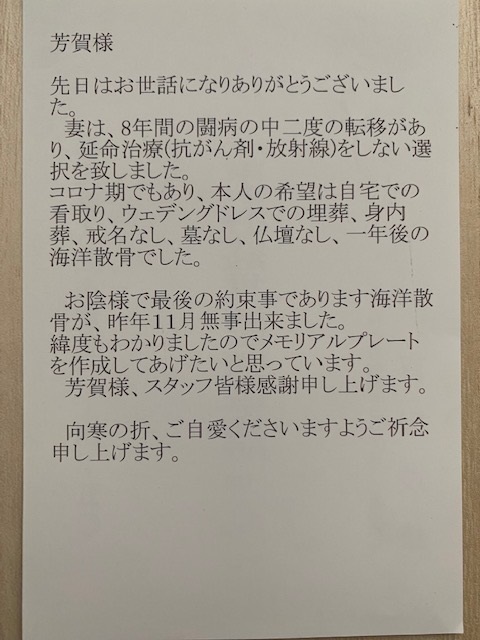 芳賀様
先日はお世話になりありがとうございまし
た。
妻は、8年間の闘病の中二度の転移があ
り、延命治療(抗がん剤・放射線)をしない選
択を致しました。
コロナ期でもあり、本人の希望は自宅での
看取り、ウェデングドレスでの埋葬、身内
葬、戒名なし、墓なし、仏壇なし、一年後の
海洋散骨でした。
お陰様で最後の約束事であります海洋散
骨が、昨年11月無事出来ました。
緯度もわかりましたのでメモリアルプレート
を作成してあげたいと思っています。
芳賀様、スタッフ皆様感謝申し上げます。
向寒の折、ご自愛くださいますようご祈念
申し上げます。